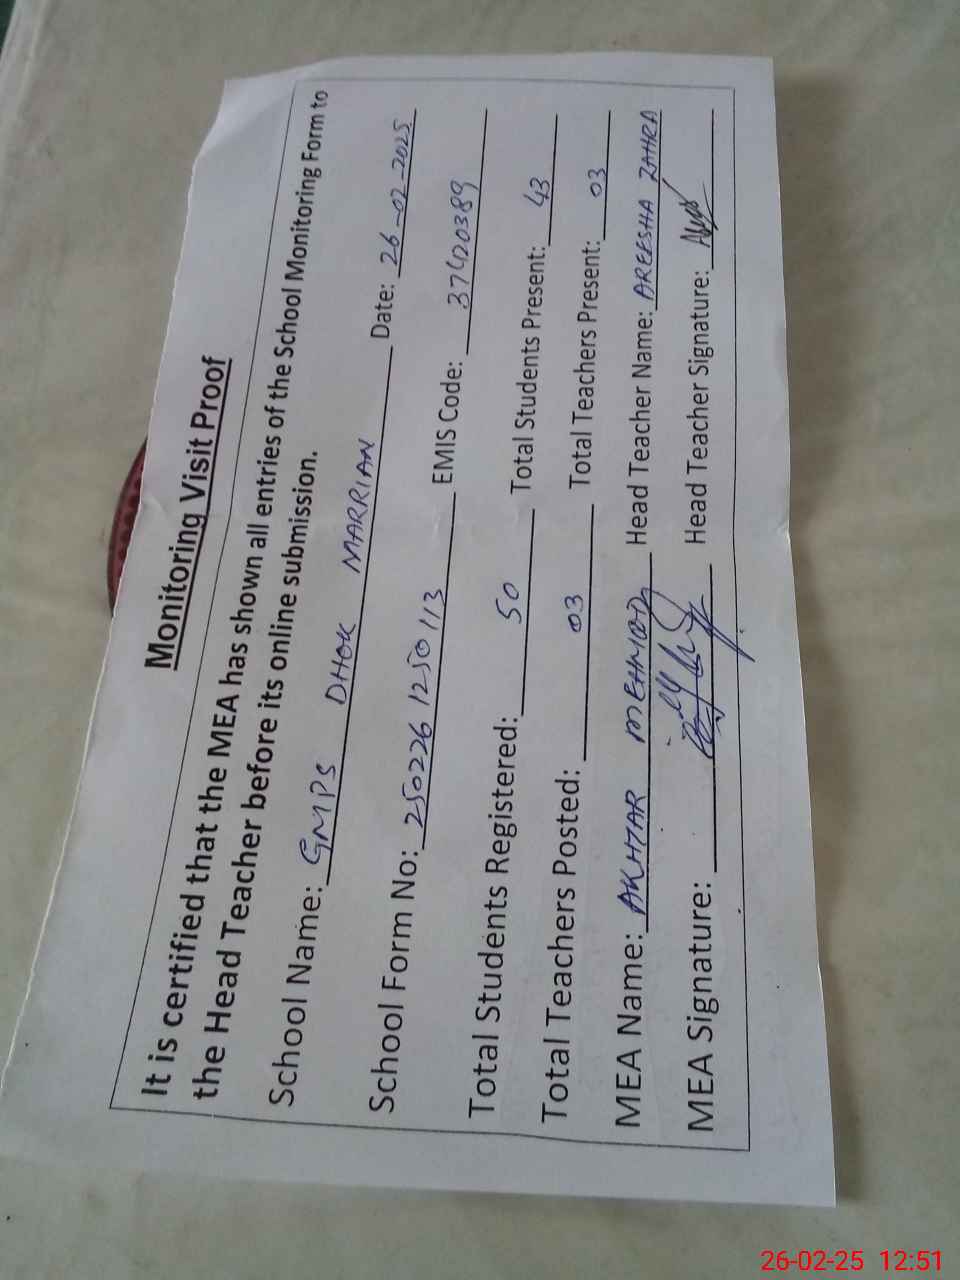 Monitoring Visit Proof
It is certified that the MEA has shown all entries of the School Monitoring Form to
the Head Teacher before its online submission.
School Name: GMPS DHOK MARRIAN Date: 26-02-2025
School Form No: 250226 1250 113 EMIS Code: 37420389
Total Students Registered: 50 Total Students Present: 43
Total Teachers Posted: 03 Total Teachers Present: 03
MEA Name: AKHTAR MEHMOOD Head Teacher Name: AREESHA ZAHRA
MEA Signature: Head Teacher Signature:
26-02-25 12:51